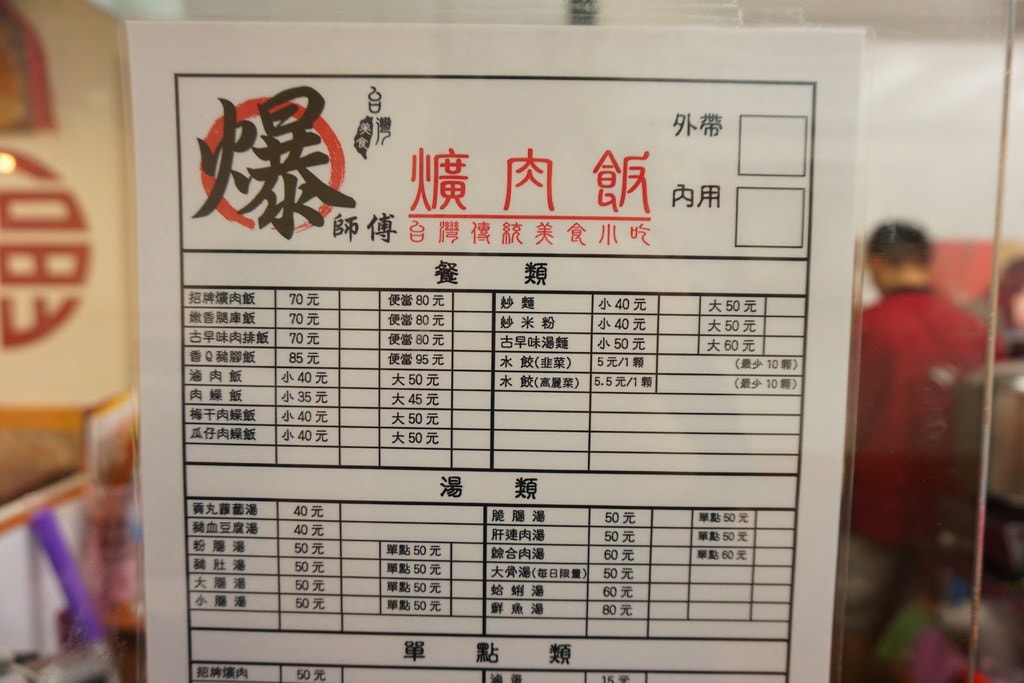 爆
師傅
台灣
美食
爌肉飯
台灣傳統美食小吃
外帶
內用
餐 類
招牌爌肉飯 70元 便當80元
嫩香腿庫飯 70元 便當80元
古早味肉排飯 70元 便當80元
香Q豬腳飯 85元 便當95元
滷肉飯 小40元 大50元
肉燥飯 小35元 大45元
梅干肉燥飯 小40元 大50元
瓜仔肉燥飯 小40元 大50元
炒麵 小40元 大50元
炒米粉 小40元 大50元
古早味湯麵 小50元 大60元
水餃(韭菜) 5元/1顆 (最少10顆)
水餃(高麗菜) 5.5元/1顆 (最少10顆)
湯 類
貢丸蘿蔔湯 40元
豬血豆腐湯 40元
粉腸湯 50元 單點50元
豬肚湯 50元 單點50元
大腸湯 50元 單點50元
小腸湯 50元 單點50元
脆腸湯 50元 單點50元
肝連肉湯 50元 單點50元
綜合肉湯 60元 單點60元
大骨湯(每日限量) 50元
蛤蜊湯 60元
鮮魚湯 80元
單 點 類
招牌爌肉 50元
滷蛋 15元